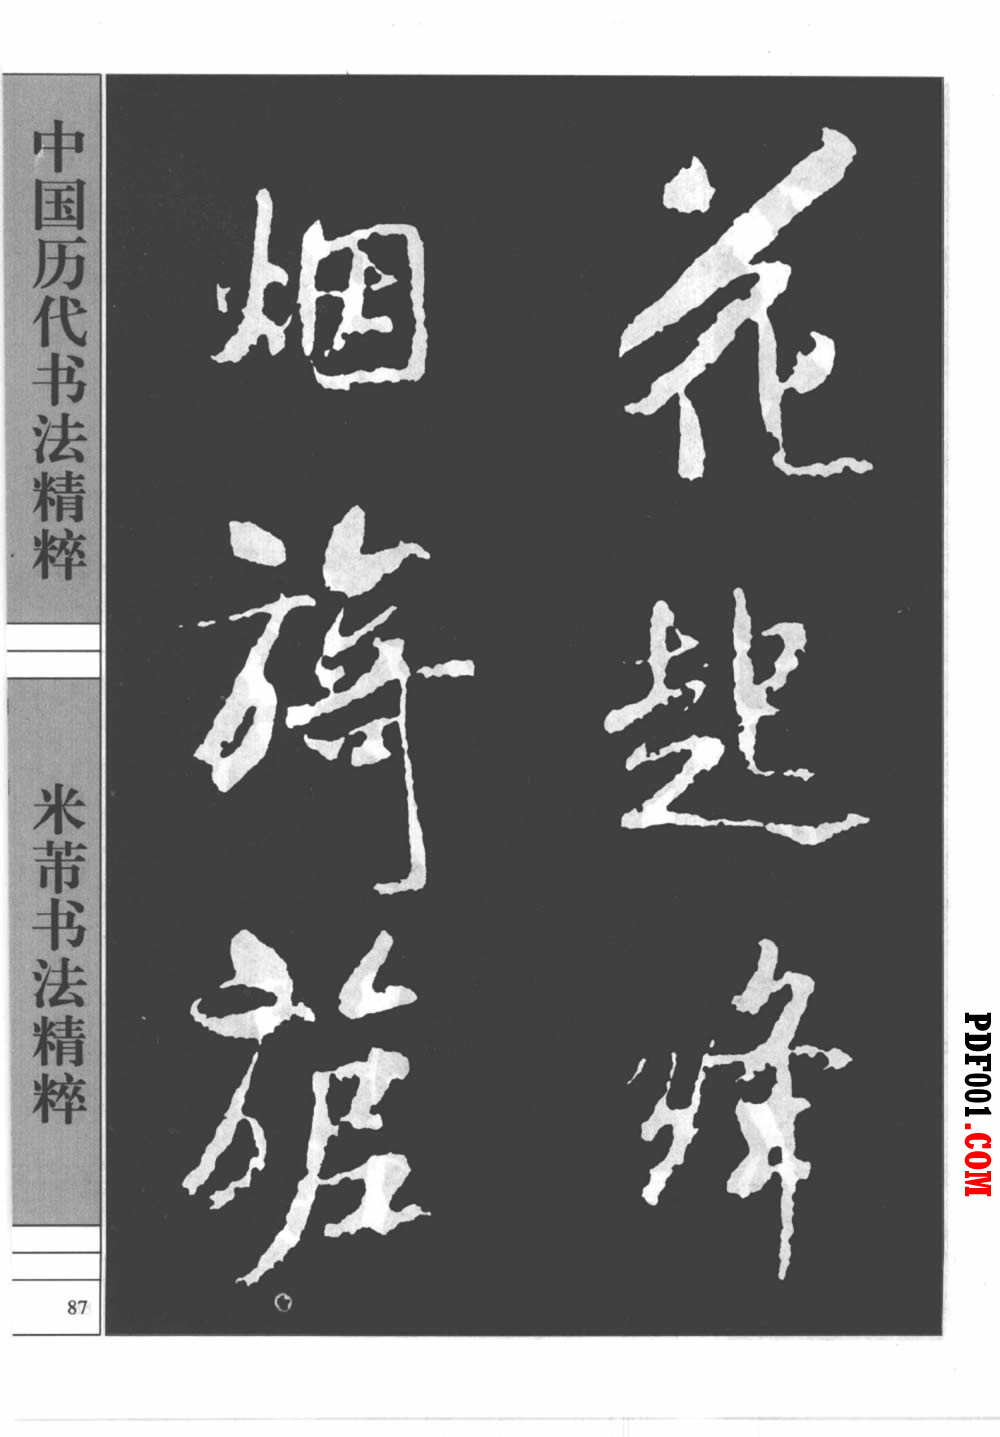 花起烽
烟旖旎
中国历代书法精粹
米芾书法精粹
87
PDF001.COM